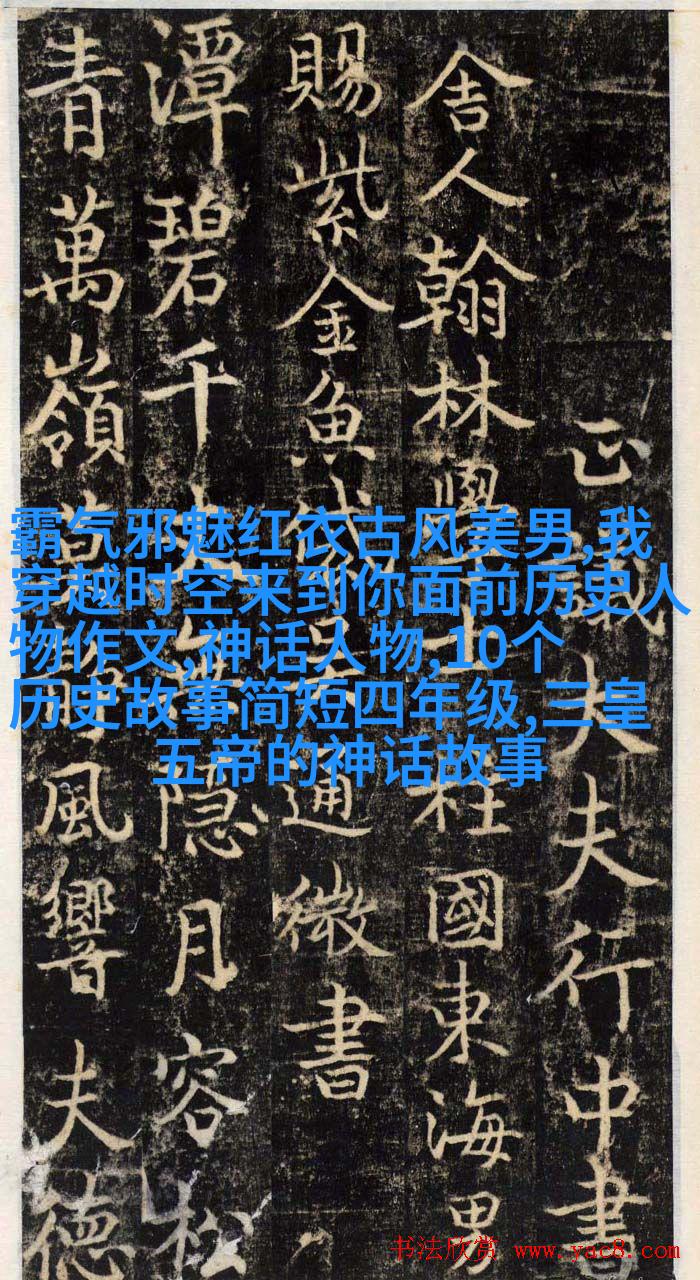 正議大夫行中書
舍人翰林學士上柱國東海男
賜紫金魚袋吳通微書
潭碧千丈無隱月容松
青萬嶺風響夫德
霸气邪魅红衣古风美男,我
穿越时空来到你面前历史人
物作文,神话人物,10个
历史故事简短四年级,三皇
五帝的神话故事
书法欣赏 www.yac8.com